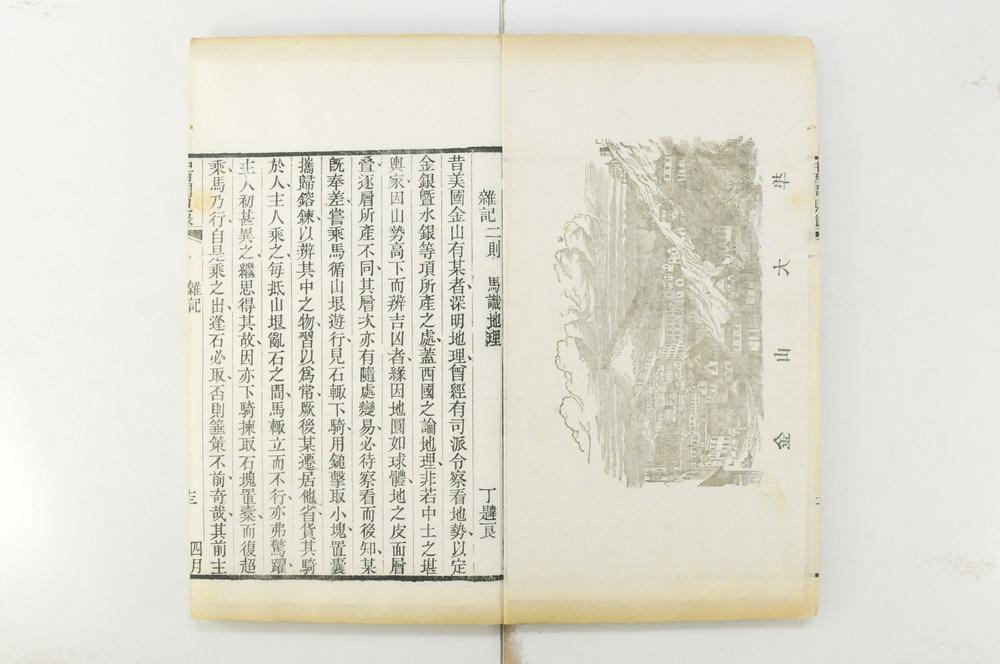 金山大埠
雜記二則 馬識地理 丁韙良
昔美國金山有某者、深明地理、曾經有司派令察看地勢、以定
金銀曁水銀等項所產之處、蓋西國之論地理、非若中土之堪
輿家、因山勢高下而辨吉凶者、緣因地圓如球、體地之皮面層
叠、逐層所產不同、其層次亦有隨處變易、必待察看而後知、某
旣奉差、嘗乘馬循山垠遊行、見石輒下騎、用鎚擊取小塊、置囊
攜歸鎔鍊、以辨其中之物、習以爲常、厥後某遷居他省、貨其騎
於人、主人乘之、每抵山垠亂石之間、馬輒立而不行、亦弗驚躍、
主人初甚異之、繼思得其故、因亦下騎揀取石塊置橐、而復超
乘、馬乃行、自是乘之出、逢石必取、否則箠策不前、奇哉、其前主
雜記
三
四月